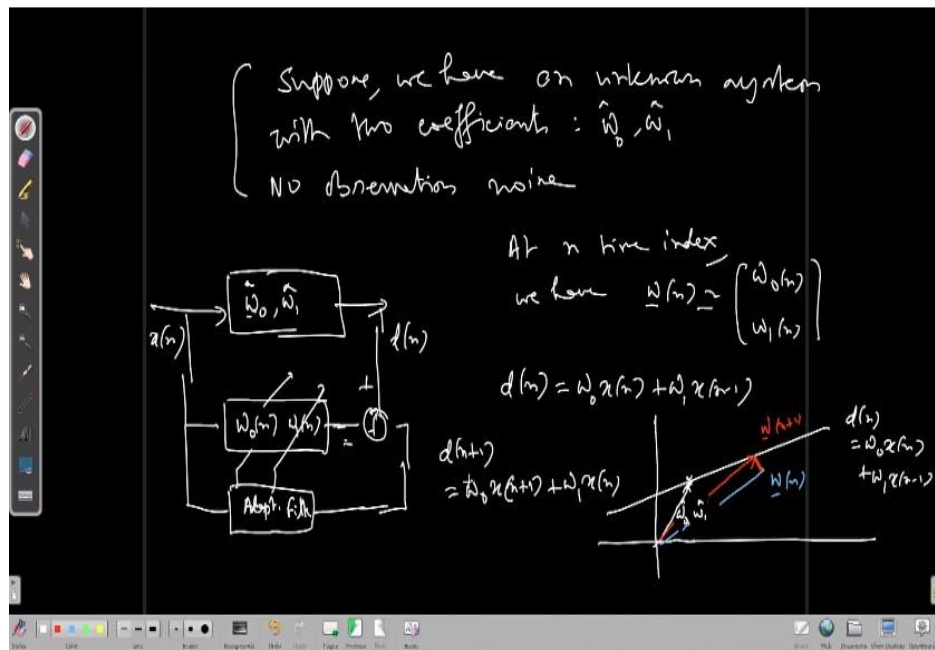 Suppose, we have an unknown system
with two coefficients : ŵ₀, ŵ₁
No observation noise
At n time index,
we have w(n) = [w₀(n)
w₁(n)]
ŵ₀, ŵ₁
x(n)
d(n)
+
w₀(n) w₁(n)
-
Adapt. Filt
d(n) = w₀x(n) + w₁x(n-1)
d(n+1)
= w₀x(n+1) + w₁x(n)
w(n+1)
w(n)
ŵ₀ ŵ₁
d(n)
= w₀x(n)
+ w₁x(n-1)